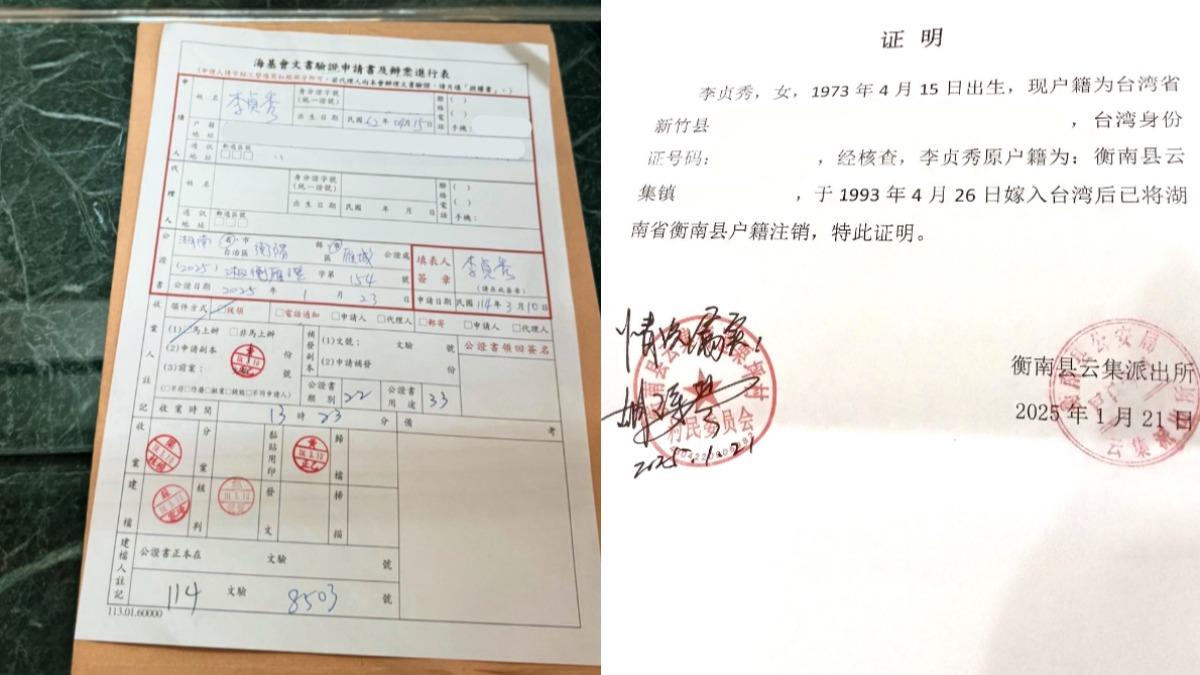 海基會文書驗證申請書及辦案進行表
(申請人請字跡工整填寫紅框部分即可,若代理人向本會辦理文書驗證,請另填「授權書」。)
申請人
姓名 李貞秀 身分證字號(統一證號) 聯絡電話 ( )
出生日期 民國62年04月15日 手機:
戶籍地址
通訊地址 郵遞區號 □□□
代理人
姓名 身分證字號(統一證號) 聯絡電話 ( )
( )
出生日期 民國 年 月 日 手機:
通訊地址 郵遞區號 □□□
公證書
湖南 省市自治區 衡陽 縣市區 雁城 公證處
(2025) 湘衡雁證 字第 154 號
公證日期 2025 年 1 月 23 日
填表人簽章 李貞秀
(請在此簽章)
申請日期 民國114年3月10日
領件方式 □候領 □電話通知 □申請人 □代理人 □郵寄 □申請人 □代理人
收案人註記
(1)□馬上辦 □非馬上辦
(2)申請副本 份
(3)前案: 號
補發副本 (1)文號: 文驗 號
(2)申請補發 份
公證書領回簽名
公證書類別 22 公證書用途 33
收案時間 13 時 23 分 備考
收案 分案 黏貼用印 歸檔
建檔 核判 發文 掃描
建檔人註記
公證書正本在 文驗 號
114 文驗 8503 號
113.01.60000
证明
李贞秀,女,1973年4月15日出生,现户籍为台湾省
新竹县 ,台湾身份
证号码: ,经核查,李贞秀原户籍为:衡南县云
集镇 ,于1993年4月26日嫁入台湾后已将湖
南省衡南县户籍注销,特此证明。
情况属实
2025.1.21
村民委员会
衡南县云集派出所
2025年1月21日